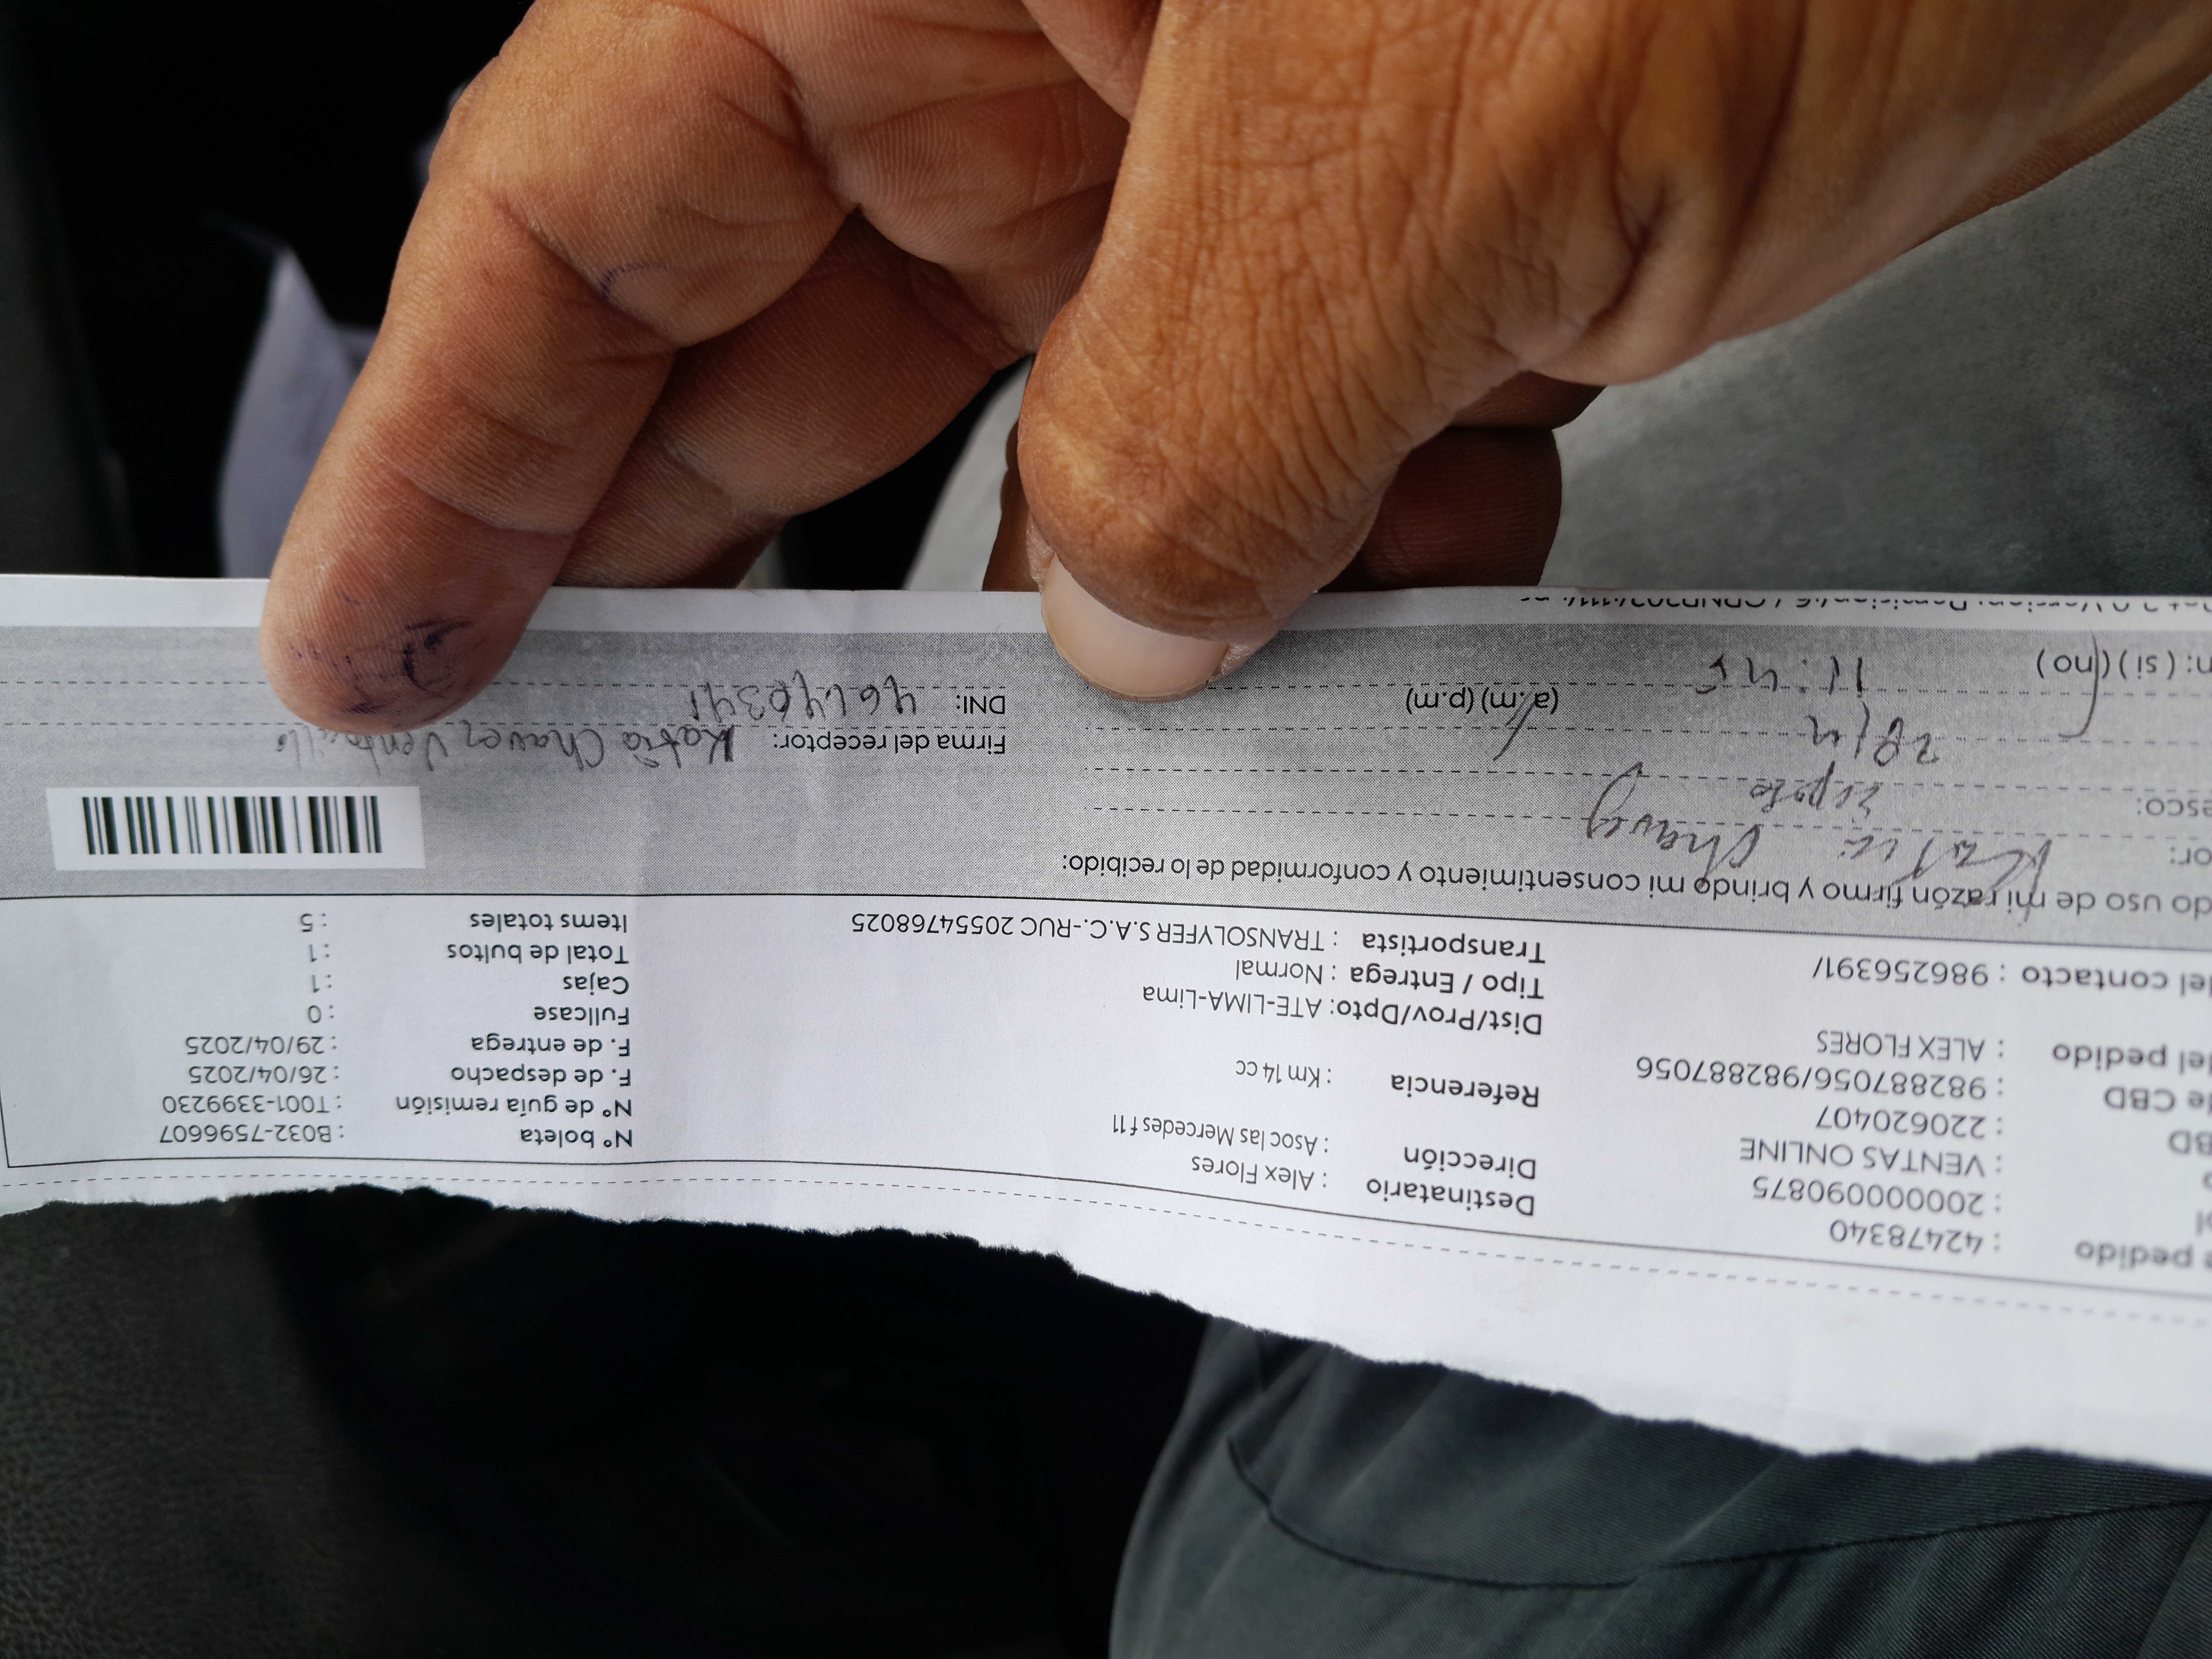 e pedido : 42478340
: 20000090875
: VENTAS ONLINE
BD : 220620407
de CBD : 982887056/982887056
del pedido : ALEX FLORES
del contacto : 986256391/
Destinatario : Alex Flores
Dirección : Asoc las Mercedes f 11
Referencia : Km 14 cc
Dist/Prov/Dpto: ATE-LIMA-Lima
Tipo / Entrega : Normal
Transportista : TRANSOLYFER S.A.C.-RUC 20554768025
Nº boleta : B032-7596607
Nº de guía remisión : T001-3399230
F. de despacho : 26/04/2025
F. de entrega : 29/04/2025
Fullcase : 0
Cajas : 1
Total de bultos : 1
Items totales : 5
do uso de mi razón firmo y brindo mi consentimiento y conformidad de lo recibido:
or: Katia Chavez
esco:
28/4
n: ( si ) ( no ) 11:45 (a.m) (p.m)
Firma del receptor: Katia Chavez
DNI: